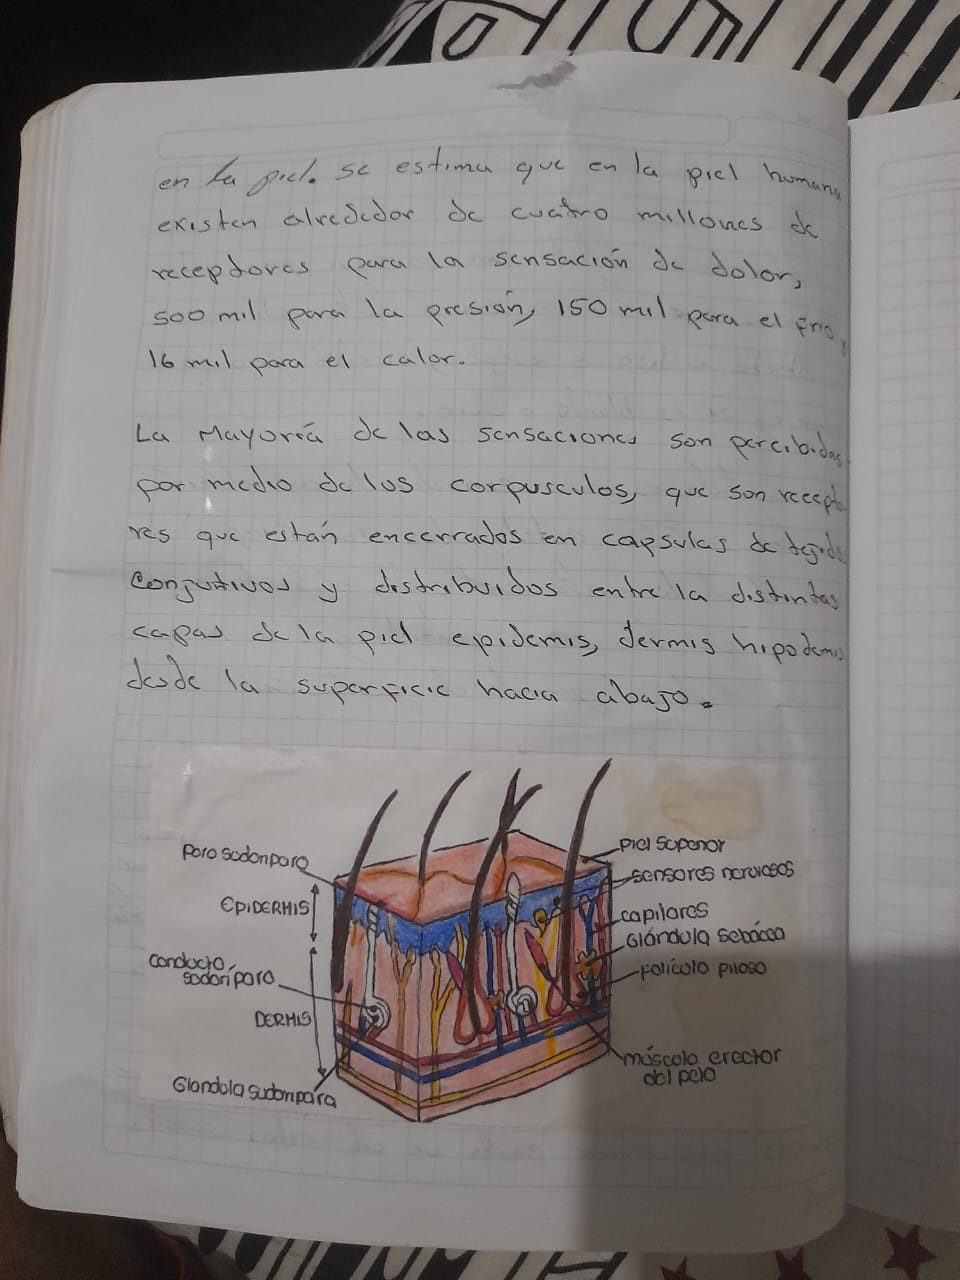 en la piel. se estima que en la piel humana
existen alrededor de cuatro millones de
receptores para la sensación de dolor,
500 mil para la presión, 150 mil para el frio,
16 mil para el calor.
La Mayoría de las sensaciones son percibidas
por medio de los corpusculos, que son recepto
res que están encerrados en capsulas de tejido
conjuntivos y distribuidos entre la distintas
capas de la piel epidemis, dermis hipodemis
desde la superficie hacia abajo.
Poro sudoríparo
EPIDERMIS
Conducto
sudoríparo
DERMIS
Glandula sudorípara
Piel Superior
sensores nerviosos
capilares
Glándula Sebácea
folículo piloso
músculo erector
del pelo